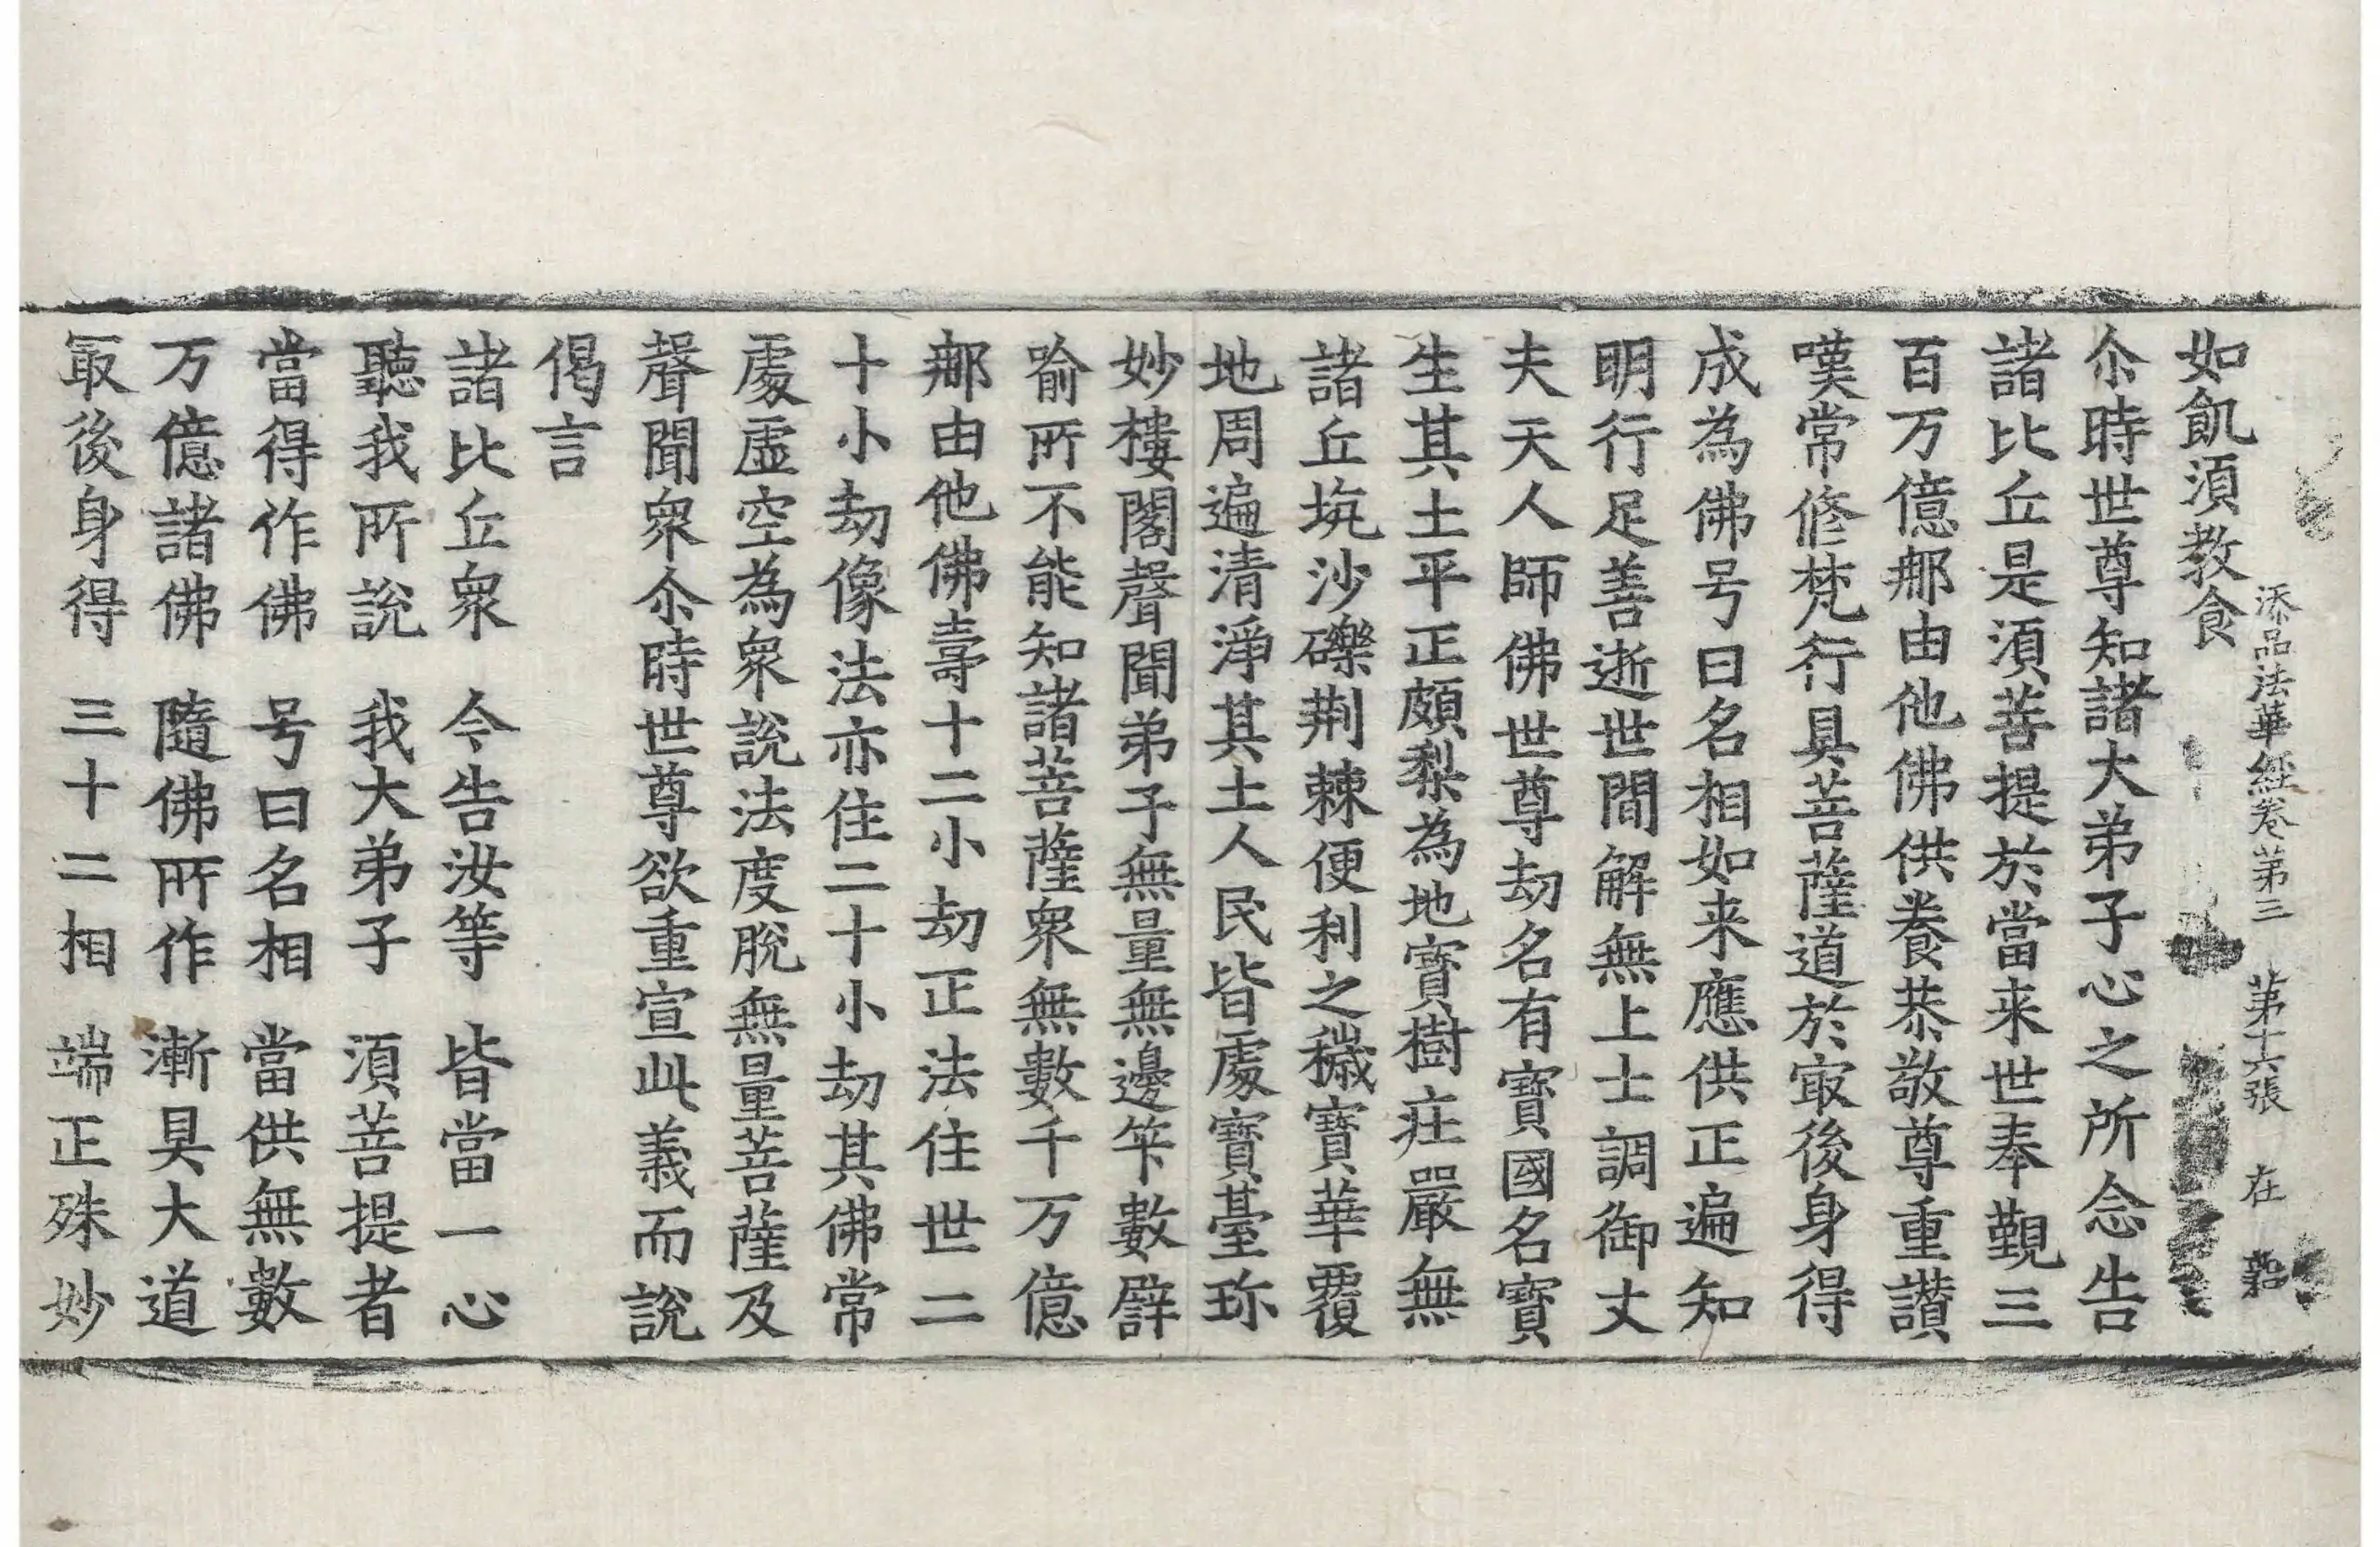 添品法華經卷第三 第十六張 在
如飢湏教食
尒時世尊知諸大弟子心之所念告
諸比丘是湏菩提於當来世奉覲三
百万億那由他佛供養恭敬尊重讃
嘆常修梵行具菩薩道於㝡後身得
成為佛号曰名相如来應供正遍知
明行足善逝世間解無上士調御丈
夫天人師佛世尊劫名有寶國名寶
生其土平正頗梨為地寶樹莊嚴無
諸丘坑沙礫荆棘便利之穢寶華覆
地周遍清淨其土人民皆處寶臺珎
妙樓閣聲聞弟子無量無邊筭數譬
喻所不能知諸菩薩衆無數千万億
那由他佛壽十二小劫正法住世二
十小劫像法亦住二十小劫其佛常
處虛空為衆說法度脫無量菩薩及
聲聞衆尒時世尊欲重宣此義而說
偈言
諸比丘衆 今告汝等 皆當一心
聽我所說 我大弟子 湏菩提者
當得作佛 号曰名相 當供無數
万億諸佛 隨佛所作 漸具大道
㝡後身得 三十二相 端正殊妙